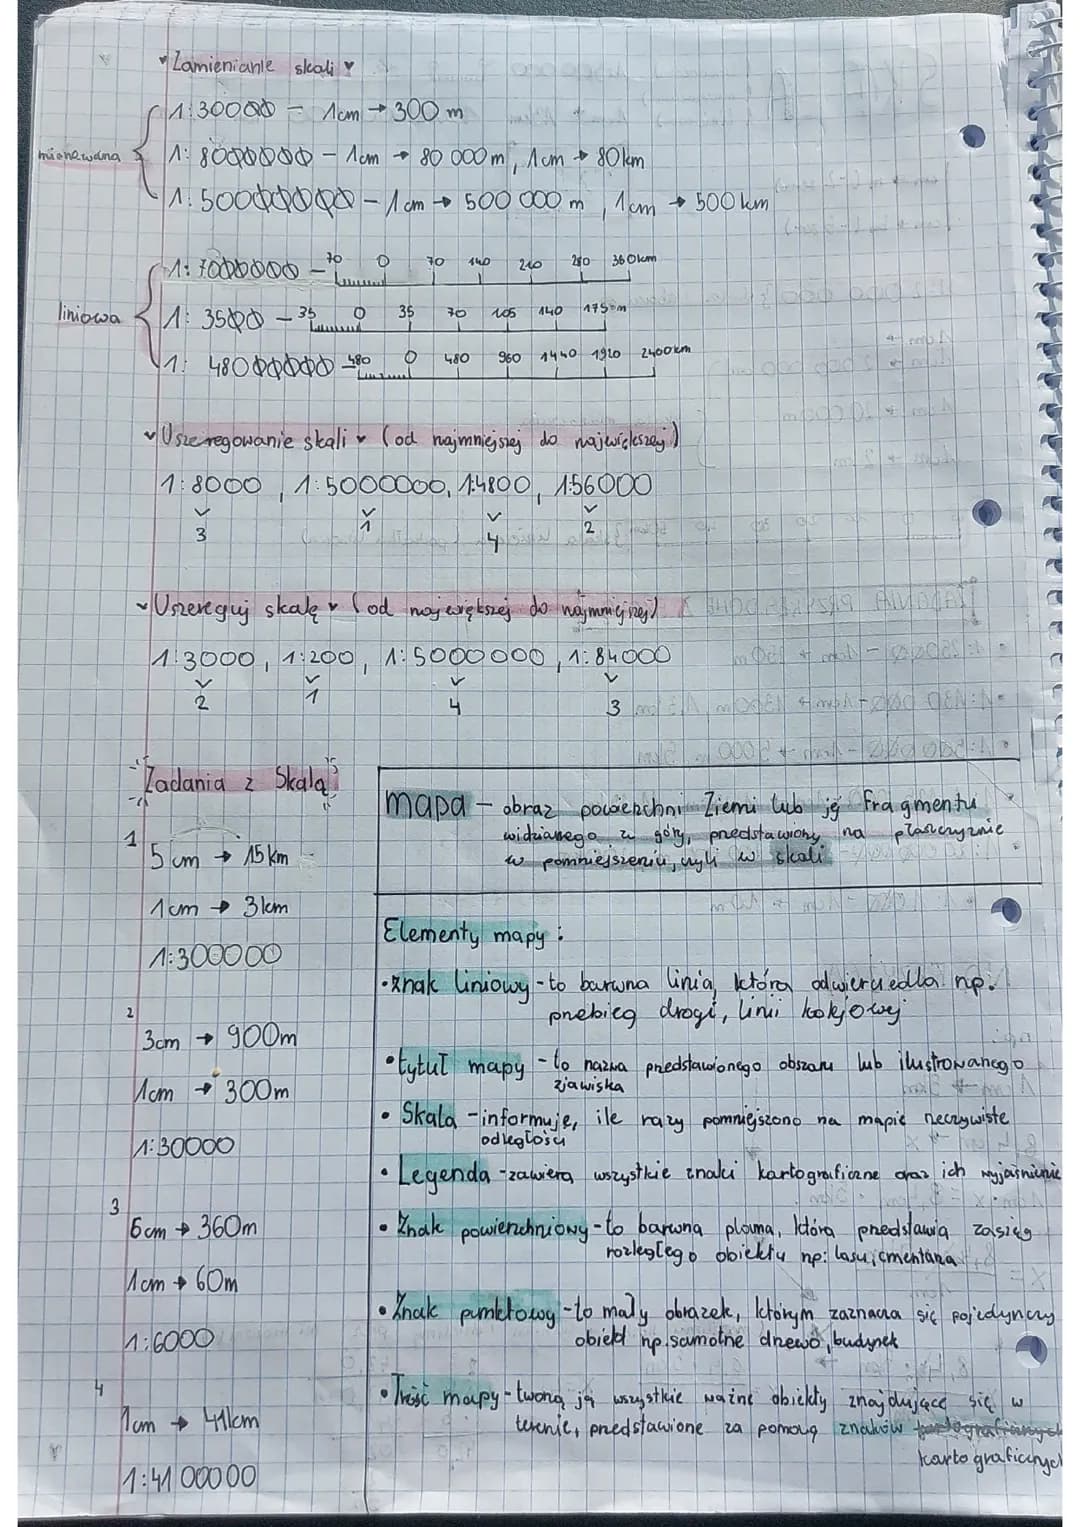 Zamienianie skali
mianowana
1:30000 - 1cm → 300 m
1: 8000000 - 1cm → 80 000m, 1cm → 80km
1: 50000000 - 1cm → 500 000 m, 1cm → 500 km
liniowa
1: 7000000 - 70 0 70 140 210 280 360km
1: 3500 - 35 0 35 70 105 140 175m
1: 48000000 - 480 0 480 960 1440 1920 2400km
Uszeregowanie skali (od najmniejszej do największej)
1:8000, 1:5000000, 1:4800, 1:56000
3 1 4 2
Uszereguj skalę (od największej do najmniejszej)
1:3000, 1:200, 1:5000000, 1:84000
2 1 4 3
Zadania z Skalą
1
5cm → 15km
1cm → 3km
1:300000
2
3cm → 900m
1cm → 300m
1:30000
3
6cm → 360m
1cm → 60m
1:6000
4
1cm → 41km
1:4100000
mapa - obraz powierzchni Ziemi lub jej fragmentu
widzianego z góry, przedstawiony na płaszczyźnie
w pomniejszeniu, czyli w skali
Elementy mapy:
•znak liniowy - to barwna linia, która odwierciedla np.
przebieg drogi, linii kolejowej
•tytuł mapy - to nazwa przedstawionego obszaru lub ilustrowanego
zjawiska
• Skala - informuje, ile razy pomniejszono na mapie rzeczywiste
odległości
• Legenda - zawiera wszystkie znaki kartograficzne oraz ich wyjaśnienie
• Znak powierzchniowy - to barwna plama, która przedstawia zasięg
rozległego obiektu np: lasu, cmentarza
• Znak punktowy - to mały obrazek, którym zaznacza się pojedynczy
obiekt np. samotne drzewo, budynek
• Treść mapy - tworzą ją wszystkie ważne obiekty znajdujące się w
terenie, przedstawione za pomocą znaków kartograficznych
kartograficznych